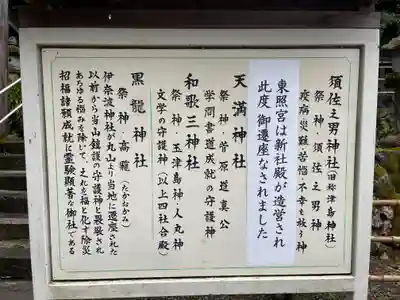 須佐之男神社(旧称津島神社)
祭神・須佐之男神
疫病災難・苦悩・不幸を救う神
東照宮は新社殿が造営され
此度御遷座なされました
天満神社
祭神菅原道真公
学問書道成就の守護神
和歌三神社
祭神・玉津島神・人丸神
文学の守護神(以上四社合殿)
黒龍神社
祭神・高龗(たかおかみ)
伊奈波神社が丸山より当地に遷座された
以前から当山鎮護の守護神と厳襲され
あらゆる悩みを除して、之れを福と化す除災
招福諸願成就に霊験顕著な御社である